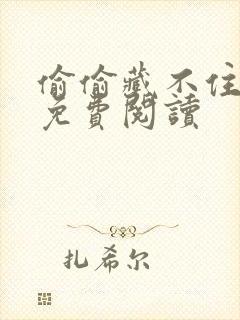 偷偷藏不住
免費閱讀
扎希尔